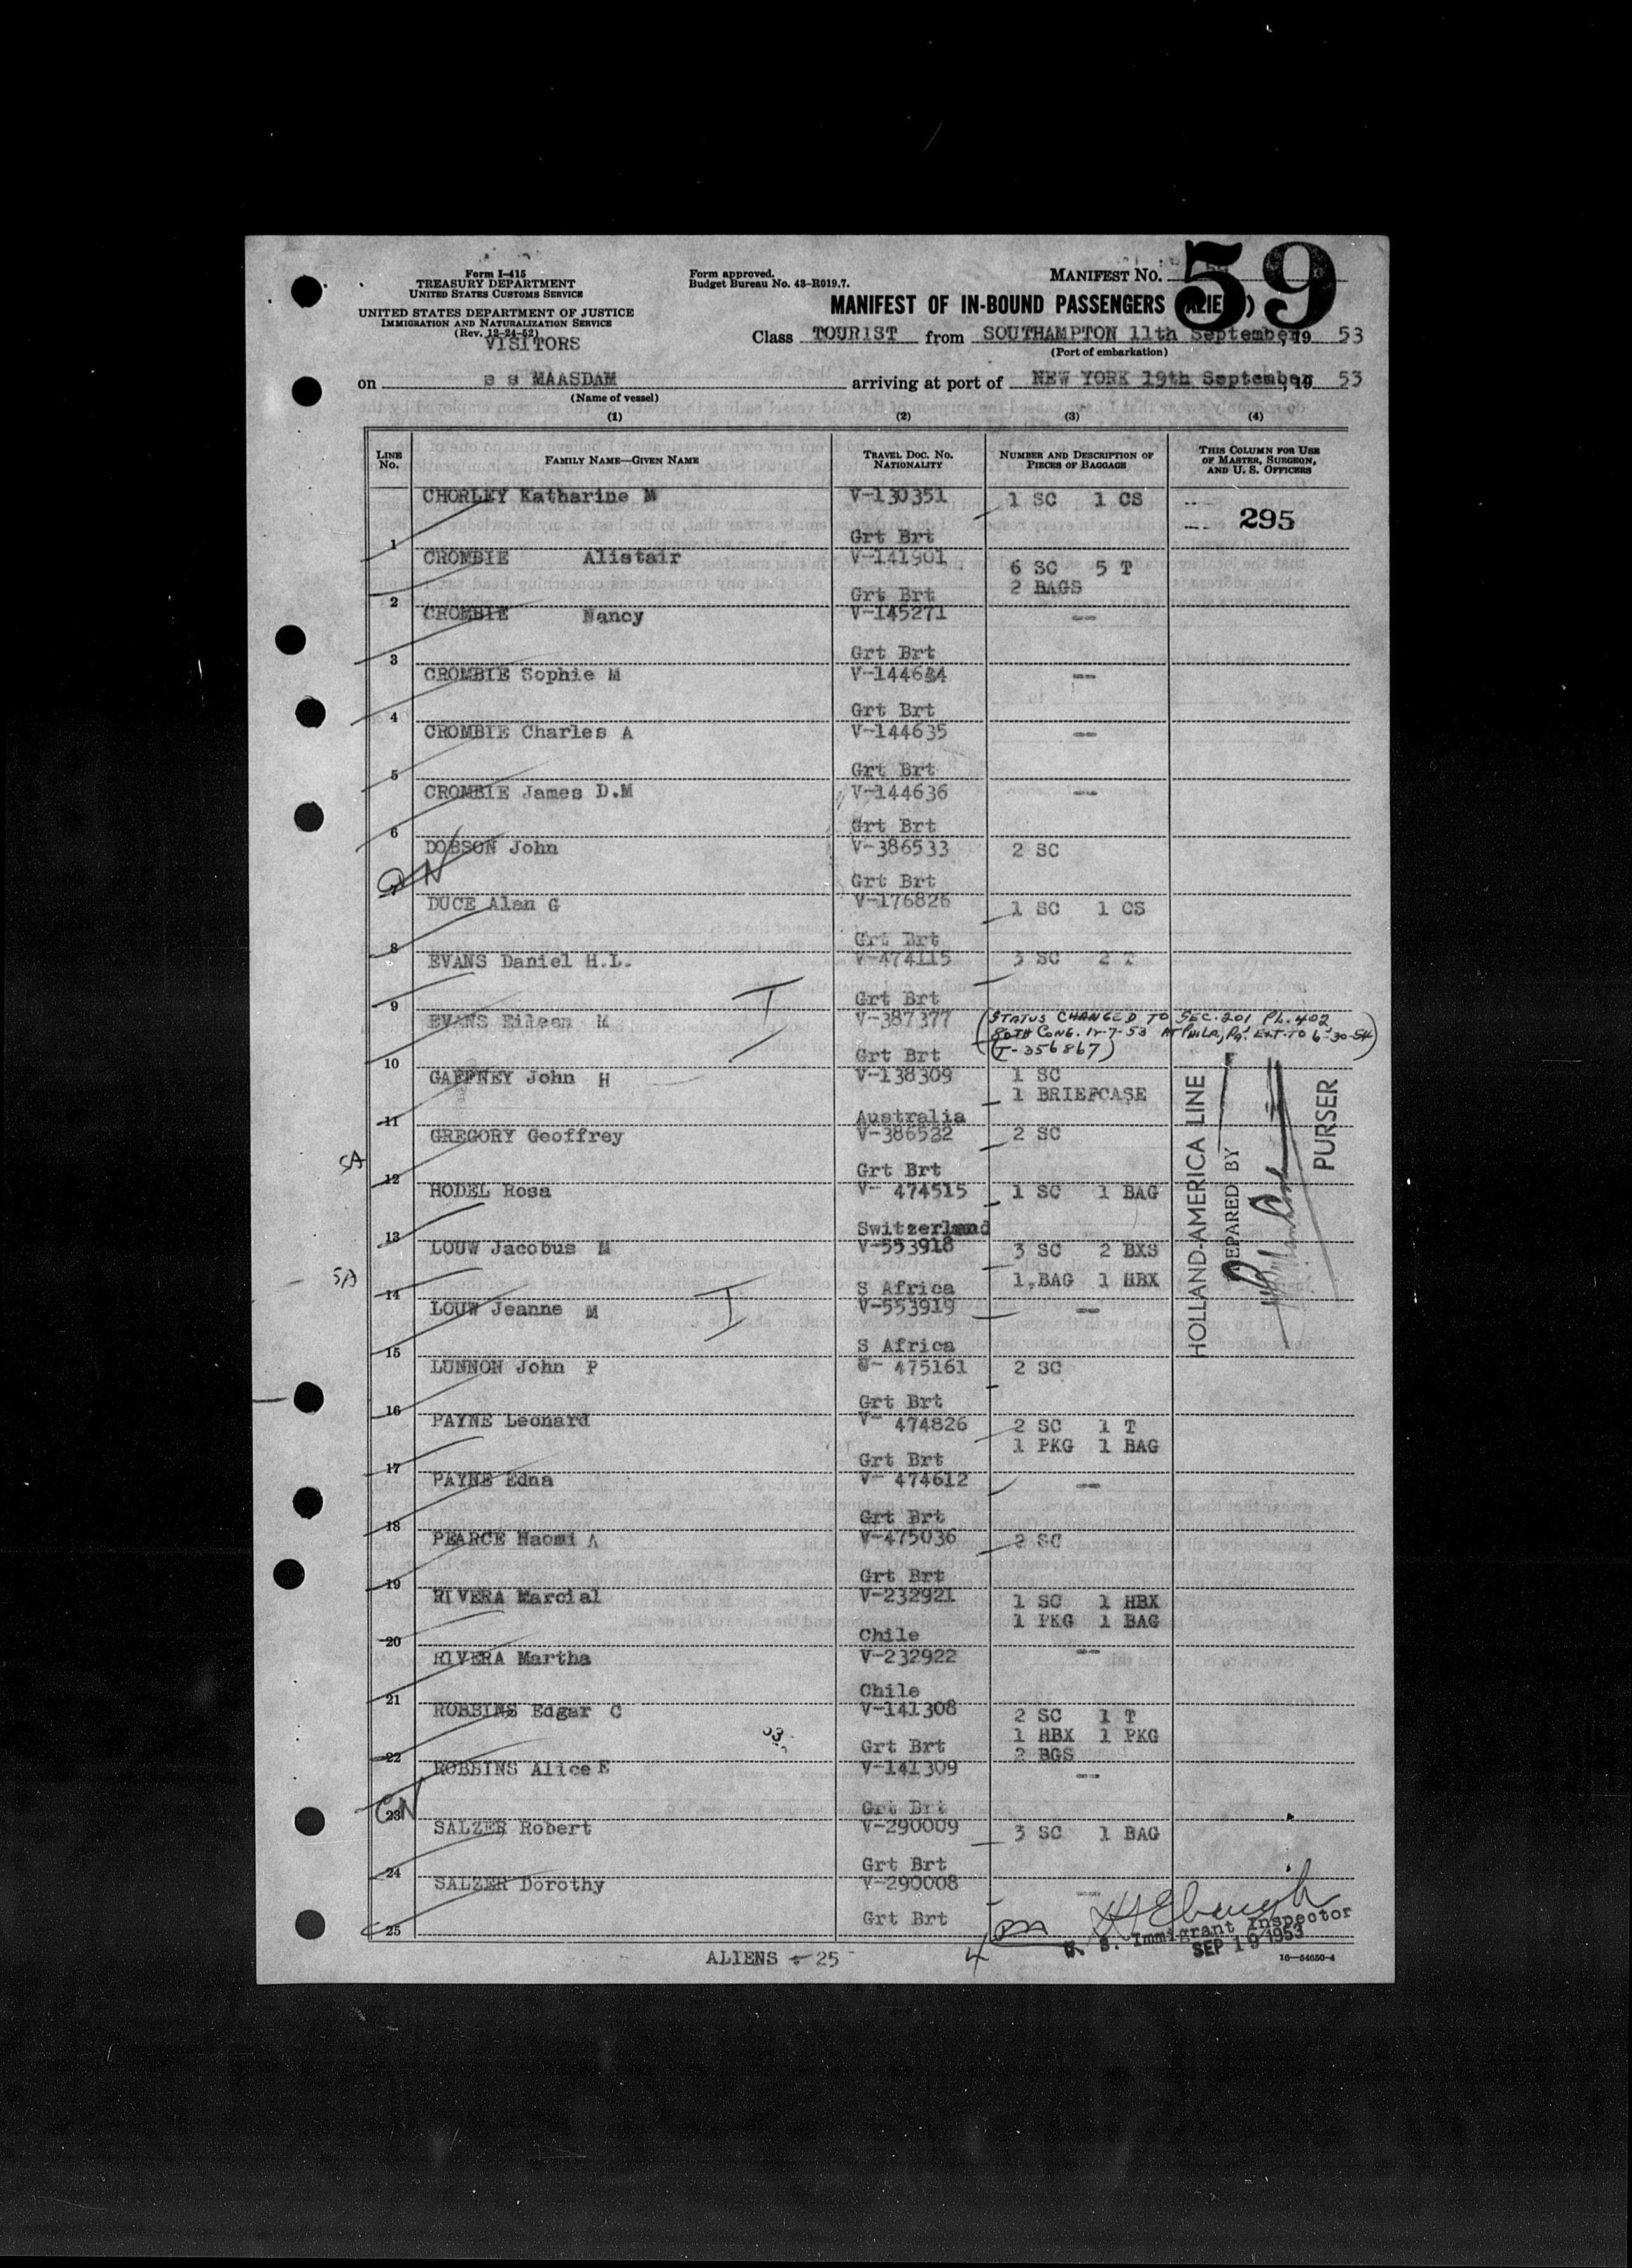 Form I-415
TREASURY DEPARTMENT
UNITED STATES CUSTOMS SERVICE
UNITED STATES DEPARTMENT OF JUSTICE
IMMIGRATION AND NATURALIZATION SERVICE
(Rev. 12-24-52)
VISITORS
Form approved.
Budget Bureau No. 43-R019.7.
MANIFEST NO. 59
MANIFEST OF IN-BOUND PASSENGERS (ALIENS)
Class TOURIST from SOUTHAMPTON 11th September, 19 53
(Port of embarkation)
on s s MAASDAM arriving at port of NEW YORK 19th September, 19 53
(Name of vessel)
(1) (2) (3) (4)
LINE No. FAMILY NAME—GIVEN NAME TRAVEL DOC. NO. NATIONALITY NUMBER AND DESCRIPTION OF PIECES OF BAGGAGE THIS COLUMN FOR USE OF MASTER, SURGEON, AND U. S. OFFICERS
CHORLEY Katharine M V-130351 1 SC 1 CS -- 295
1 Grt Brt
CROMBIE Alistair V-141901 6 SC 5 T
2 BAGS
2 Grt Brt
CROMBIE Nancy V-145271 --
3 Grt Brt
CROMBIE Sophie M V-144634 --
4 Grt Brt
CROMBIE Charles A V-144635 --
5 Grt Brt
CROMBIE James D.M V-144636 --
6 Grt Brt
DOBSON John V-386533 2 SC
7 Grt Brt
DUCE Alan G V-176826 1 SC 1 CS
8 Grt Brt
EVANS Daniel H.L. V-474115 3 SC 2 T
9 Grt Brt
EVANS Eileen M V-387377 (STATUS CHANGED TO SEC. 201 PL. 402
80TH CONG. 12-7-53 AT PHILA, PA. EXT. TO 6-30-54
(T-356867)
10 Grt Brt
GAFFNEY John H V-138309 1 SC
1 BRIEFCASE
11 Australia
GREGORY Geoffrey V-386532 2 SC
SA
12 Grt Brt
HODEL Rosa V- 474515 1 SC 1 BAG
13 Switzerland
LOUW Jacobus M V-553918 3 SC 2 BXS
SA
14 S Africa 1 BAG 1 HBX
LOUW Jeanne M V-553919 --
15 S Africa
LUNNON John P V- 475161 2 SC
16 Grt Brt
PAYNE Leonard V- 474826 2 SC 1 T
1 PKG 1 BAG
17 Grt Brt
PAYNE Edna V- 474612 --
18 Grt Brt
PEARCE Naomi A V-475036 2 SC
19 Grt Brt
RIVERA Marcial V-232921 1 SC 1 HBX
1 PKG 1 BAG
20 Chile
RIVERA Martha V-232922 --
21 Chile
ROBBINS Edgar C V-141308 2 SC 1 T
1 HBX 1 PKG
22 Grt Brt 2 BGS
ROBBINS Alice E V-141309 --
23 Grt Brt
SALZER Robert V-290009 3 SC 1 BAG
24 Grt Brt
SALZER Dorothy V-290008 --
25 Grt Brt
HOLLAND-AMERICA LINE
PREPARED BY
PURSER
U. S. Immigrant Inspector
SEP 19 1953
ALIENS - 25
16—64650-4